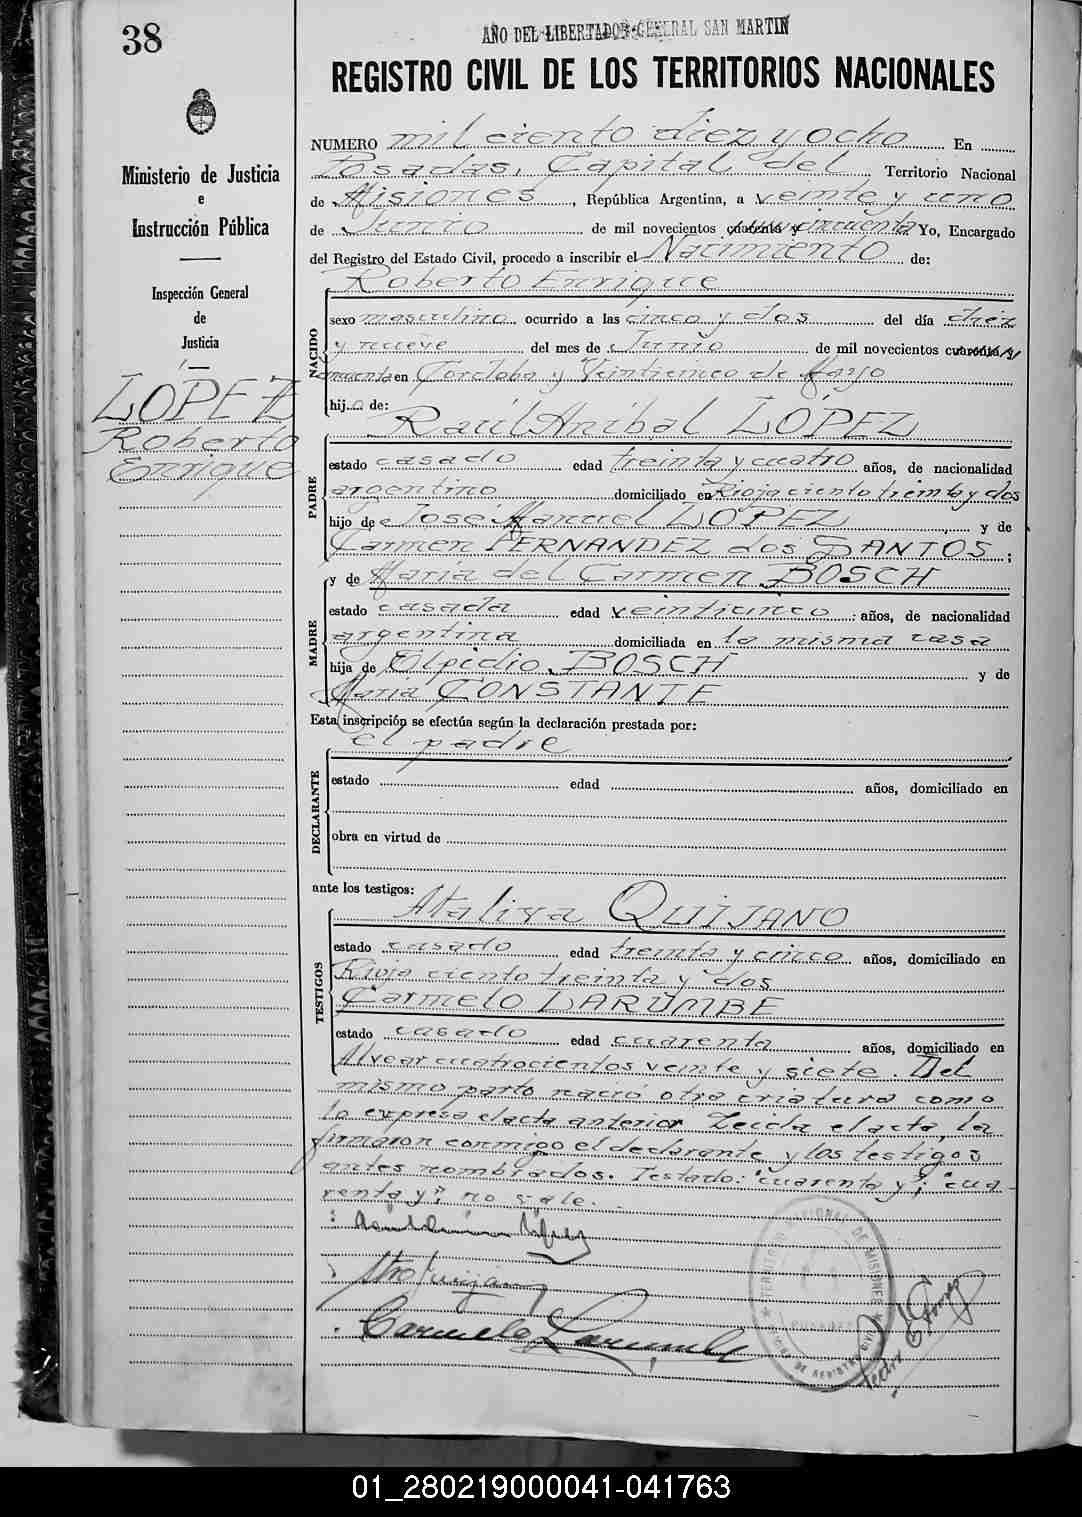 38
AÑO DEL LIBERTADOR GENERAL SAN MARTIN
REGISTRO CIVIL DE LOS TERRITORIOS NACIONALES
Ministerio de Justicia
e
Instrucción Pública
Inspección General
de
Justicia
LÓPEZ
Roberto
Enrique
NUMERO mil ciento diez y ocho En
Posadas, Capital del Territorio Nacional
de Misiones, República Argentina, a veinte y uno
de Junio de mil novecientos cuarenta y cincuenta Yo, Encargado
del Registro del Estado Civil, procedo a inscribir el Nacimiento de:
Roberto Enrique
NACIDO
sexo masculino ocurrido a las cinco y dos del día diez
y nueve del mes de Junio de mil novecientos cuarenta y
cincuenta en Córdoba y Veinticinco de Mayo
hijo de:
Raúl Aníbal LÓPEZ
PADRE
estado casado edad treinta y cuatro años, de nacionalidad
argentino domiciliado en Rioja ciento treinta y dos
hijo de José Manuel LÓPEZ y de
Carmen FERNANDEZ dos SANTOS;
y de María del Carmen BOSCH
MADRE
estado casada edad veinticinco años, de nacionalidad
argentina domiciliada en la misma casa
hija de Elpidio BOSCH y de
María CONSTANTE
Esta inscripción se efectúa según la declaración prestada por:
el padre
DECLARANTE
estado edad años, domiciliado en
obra en virtud de
ante los testigos:
Ataliva QUIJANO
TESTIGOS
estado casado edad treinta y cinco años, domiciliado en
Rioja ciento treinta y dos
Carmelo LARUMBE
estado casado edad cuarenta años, domiciliado en
Alvear cuatrocientos veinte y siete. Del
mismo parto nació otra criatura como
lo expresa el acta anterior. Leída el acta, la
firmaron conmigo el declarante y los testigos
antes nombrados. Testado: "cuarenta y"; "cua-
renta y"; no vale.
Carmelo Larumbe
TERRITORIO NACIONAL DE MISIONES
POSADAS
01_280219000041-041763